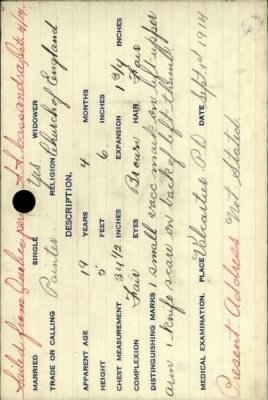 Sailed from Quebec per S.S. Cassandra Oct 4/14.
MARRIED SINGLE Yes WIDOWER
TRADE OR CALLING Painter RELIGION Church of England
DESCRIPTION.
APPARENT AGE 19 YEARS 4 MONTHS
HEIGHT 5 FEET 6 INCHES
CHEST MEASUREMENT 34 1/2 INCHES EXPANSION 1 3/4 INCHES
COMPLEXION Fair EYES Brown HAIR Fair
DISTINGUISHING MARKS 1 small vacc mark on left upper
arm, 1 knife scar on back of left thumb.
MEDICAL EXAMINATION. PLACE Valcartier P.Q. DATE Sept. 1914.
Present Address Not Stated.